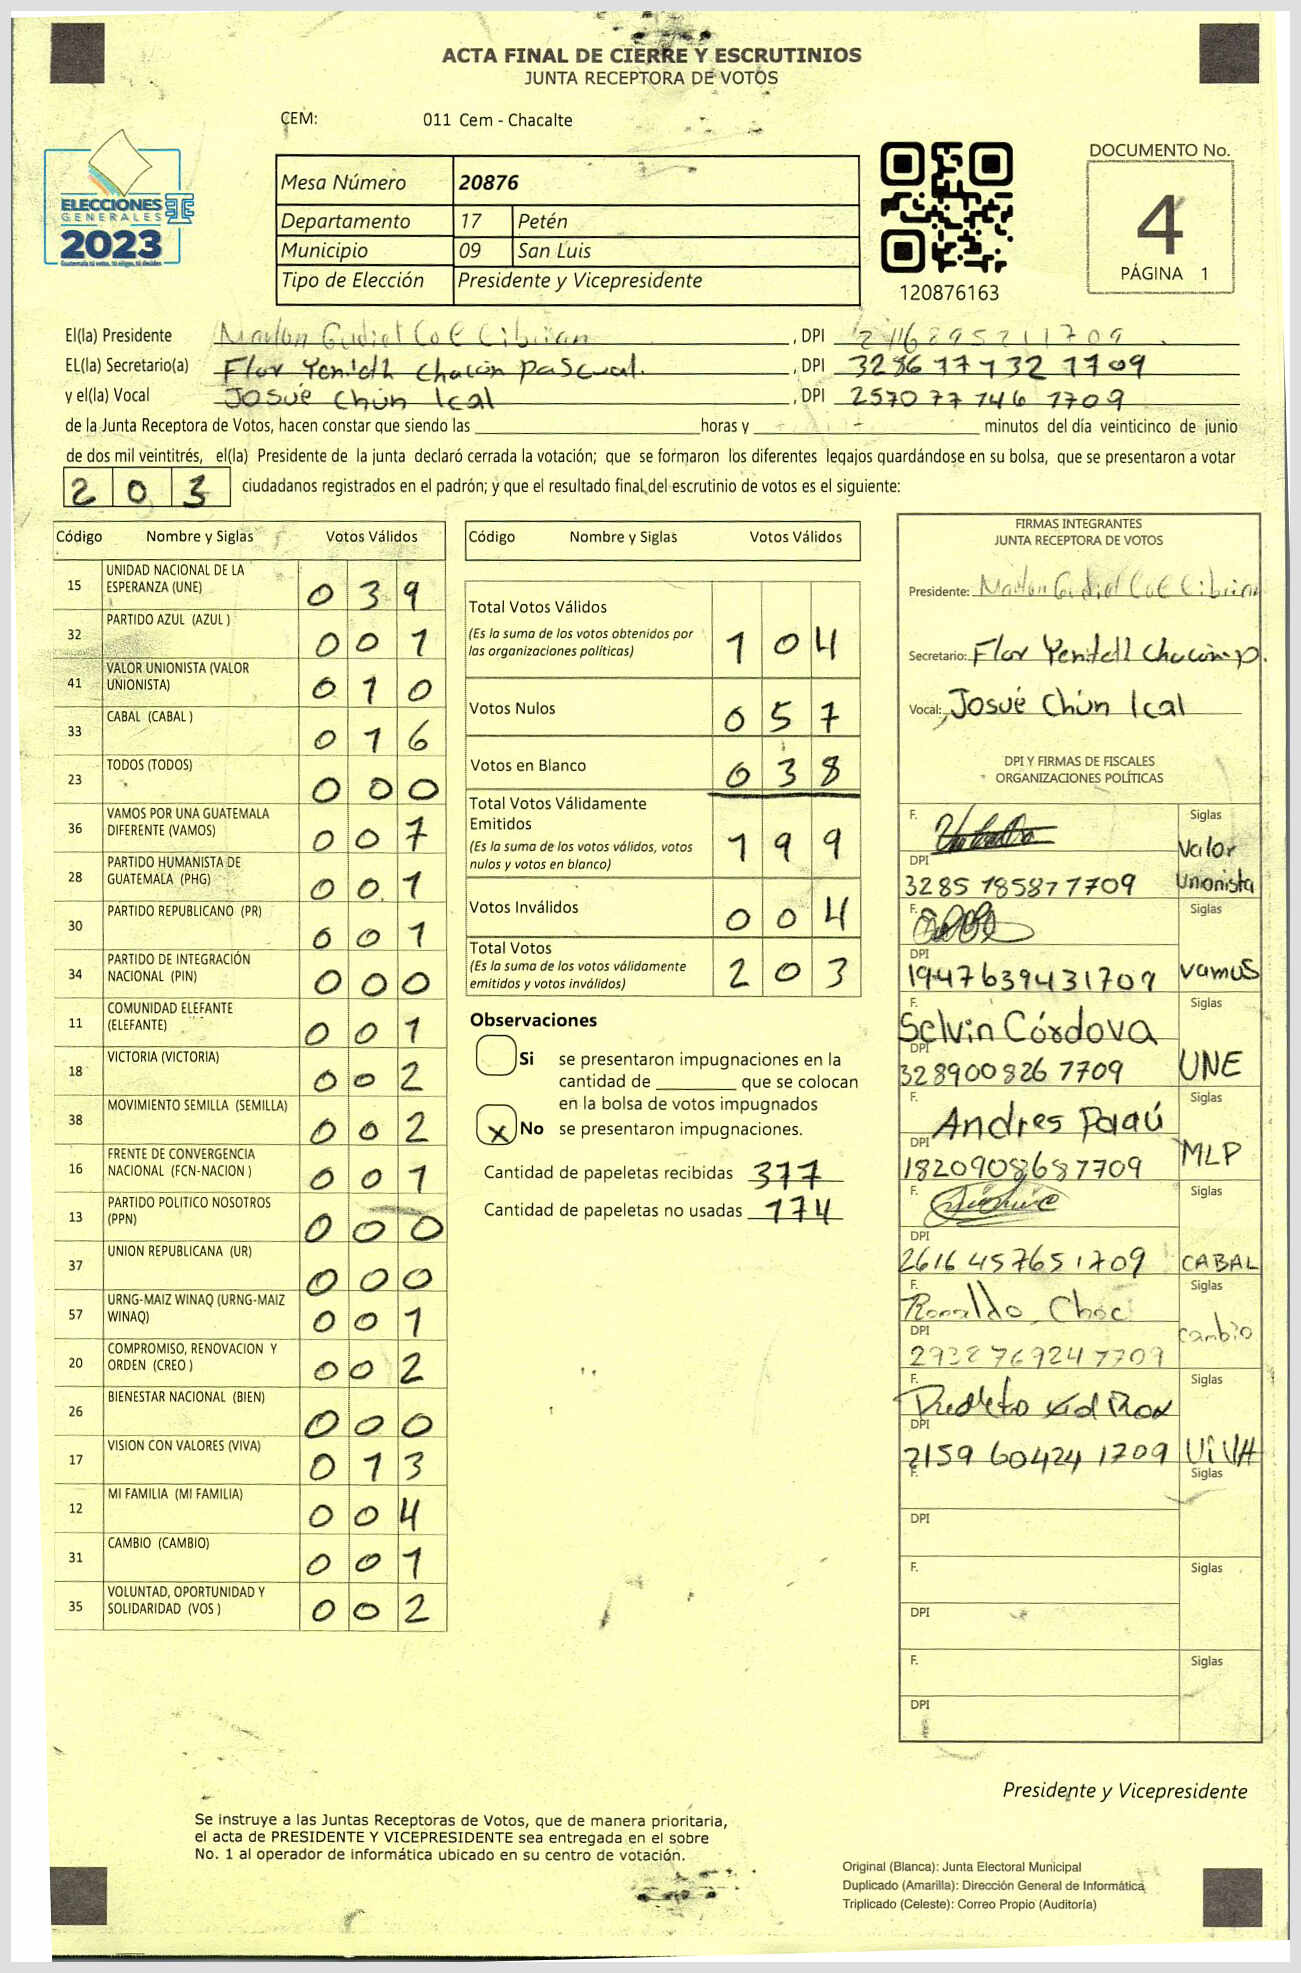 ACTA FINAL DE CIERRE Y ESCRUTINIOS
JUNTA RECEPTORA DE VOTOS
CEM: 011 Cem - Chacalte
ELECCIONES
GENERALES
2023
Guatemala tú votas, tú eliges, tú decides.
Mesa Número 20876
Departamento 17 Petén
Municipio 09 San Luis
Tipo de Elección Presidente y Vicepresidente
120876163
DOCUMENTO No.
4
PÁGINA 1
El(la) Presidente Marlon Gudiel Col Cibrian , DPI 2116895211709
EL(la) Secretario(a) Flor Yenidth Chacón Pascual. , DPI 3286 77732 1709
y el(la) Vocal Josué Chún Ical , DPI 2570 77146 1709
de la Junta Receptora de Votos, hacen constar que siendo las horas y minutos del día veinticinco de junio
de dos mil veintitrés, el(la) Presidente de la junta declaró cerrada la votación; que se formaron los diferentes legajos guardándose en su bolsa, que se presentaron a votar
203 ciudadanos registrados en el padrón; y que el resultado final del escrutinio de votos es el siguiente:
Código Nombre y Siglas Votos Válidos
15 UNIDAD NACIONAL DE LA ESPERANZA (UNE) 039
32 PARTIDO AZUL (AZUL ) 001
41 VALOR UNIONISTA (VALOR UNIONISTA) 010
33 CABAL (CABAL ) 016
23 TODOS (TODOS) 000
36 VAMOS POR UNA GUATEMALA DIFERENTE (VAMOS) 007
28 PARTIDO HUMANISTA DE GUATEMALA (PHG) 001
30 PARTIDO REPUBLICANO (PR) 001
34 PARTIDO DE INTEGRACIÓN NACIONAL (PIN) 000
11 COMUNIDAD ELEFANTE (ELEFANTE) 001
18 VICTORIA (VICTORIA) 002
38 MOVIMIENTO SEMILLA (SEMILLA) 002
16 FRENTE DE CONVERGENCIA NACIONAL (FCN-NACION ) 001
13 PARTIDO POLITICO NOSOTROS (PPN) 000
37 UNION REPUBLICANA (UR) 000
57 URNG-MAIZ WINAQ (URNG-MAIZ WINAQ) 001
20 COMPROMISO, RENOVACION Y ORDEN (CREO ) 002
26 BIENESTAR NACIONAL (BIEN) 000
17 VISION CON VALORES (VIVA) 013
12 MI FAMILIA (MI FAMILIA) 004
31 CAMBIO (CAMBIO) 001
35 VOLUNTAD, OPORTUNIDAD Y SOLIDARIDAD (VOS ) 002
Código Nombre y Siglas Votos Válidos
Total Votos Válidos 104
(Es la suma de los votos obtenidos por
las organizaciones políticas)
Votos Nulos 057
Votos en Blanco 038
Total Votos Válidamente
Emitidos 199
(Es la suma de los votos válidos, votos
nulos y votos en blanco)
Votos Inválidos 004
Total Votos 203
(Es la suma de los votos válidamente
emitidos y votos inválidos)
Observaciones
Si se presentaron impugnaciones en la
cantidad de que se colocan
en la bolsa de votos impugnados
X No se presentaron impugnaciones.
Cantidad de papeletas recibidas 377
Cantidad de papeletas no usadas 174
FIRMAS INTEGRANTES
JUNTA RECEPTORA DE VOTOS
Presidente: Marlon Gudiel Col Cibrian
Secretario: Flor Yenidth Chacón p.
Vocal: Josué Chún Ical
DPI Y FIRMAS DE FISCALES
ORGANIZACIONES POLÍTICAS
F. Siglas
DPI 3285 785877709 Valor Unionista
F. Siglas
DPI 1947639431709 vamos
F. Selvin Córdova Siglas
DPI 328900826 7709 UNE
F. Andres Paaú Siglas
DPI 1820908687709 MLP
F. Siglas
DPI 2616457651709 CABAL
F. Ronaldo Choc Siglas
DPI 2938769247709 cambio
F. Siglas
DPI 2159 60424 1709 ViVA
F. Siglas
DPI
F. Siglas
DPI
F. Siglas
DPI
Presidente y Vicepresidente
Se instruye a las Juntas Receptoras de Votos, que de manera prioritaria,
el acta de PRESIDENTE Y VICEPRESIDENTE sea entregada en el sobre
No. 1 al operador de informática ubicado en su centro de votación.
Original (Blanca): Junta Electoral Municipal
Duplicado (Amarilla): Dirección General de Informática
Triplicado (Celeste): Correo Propio (Auditoría)